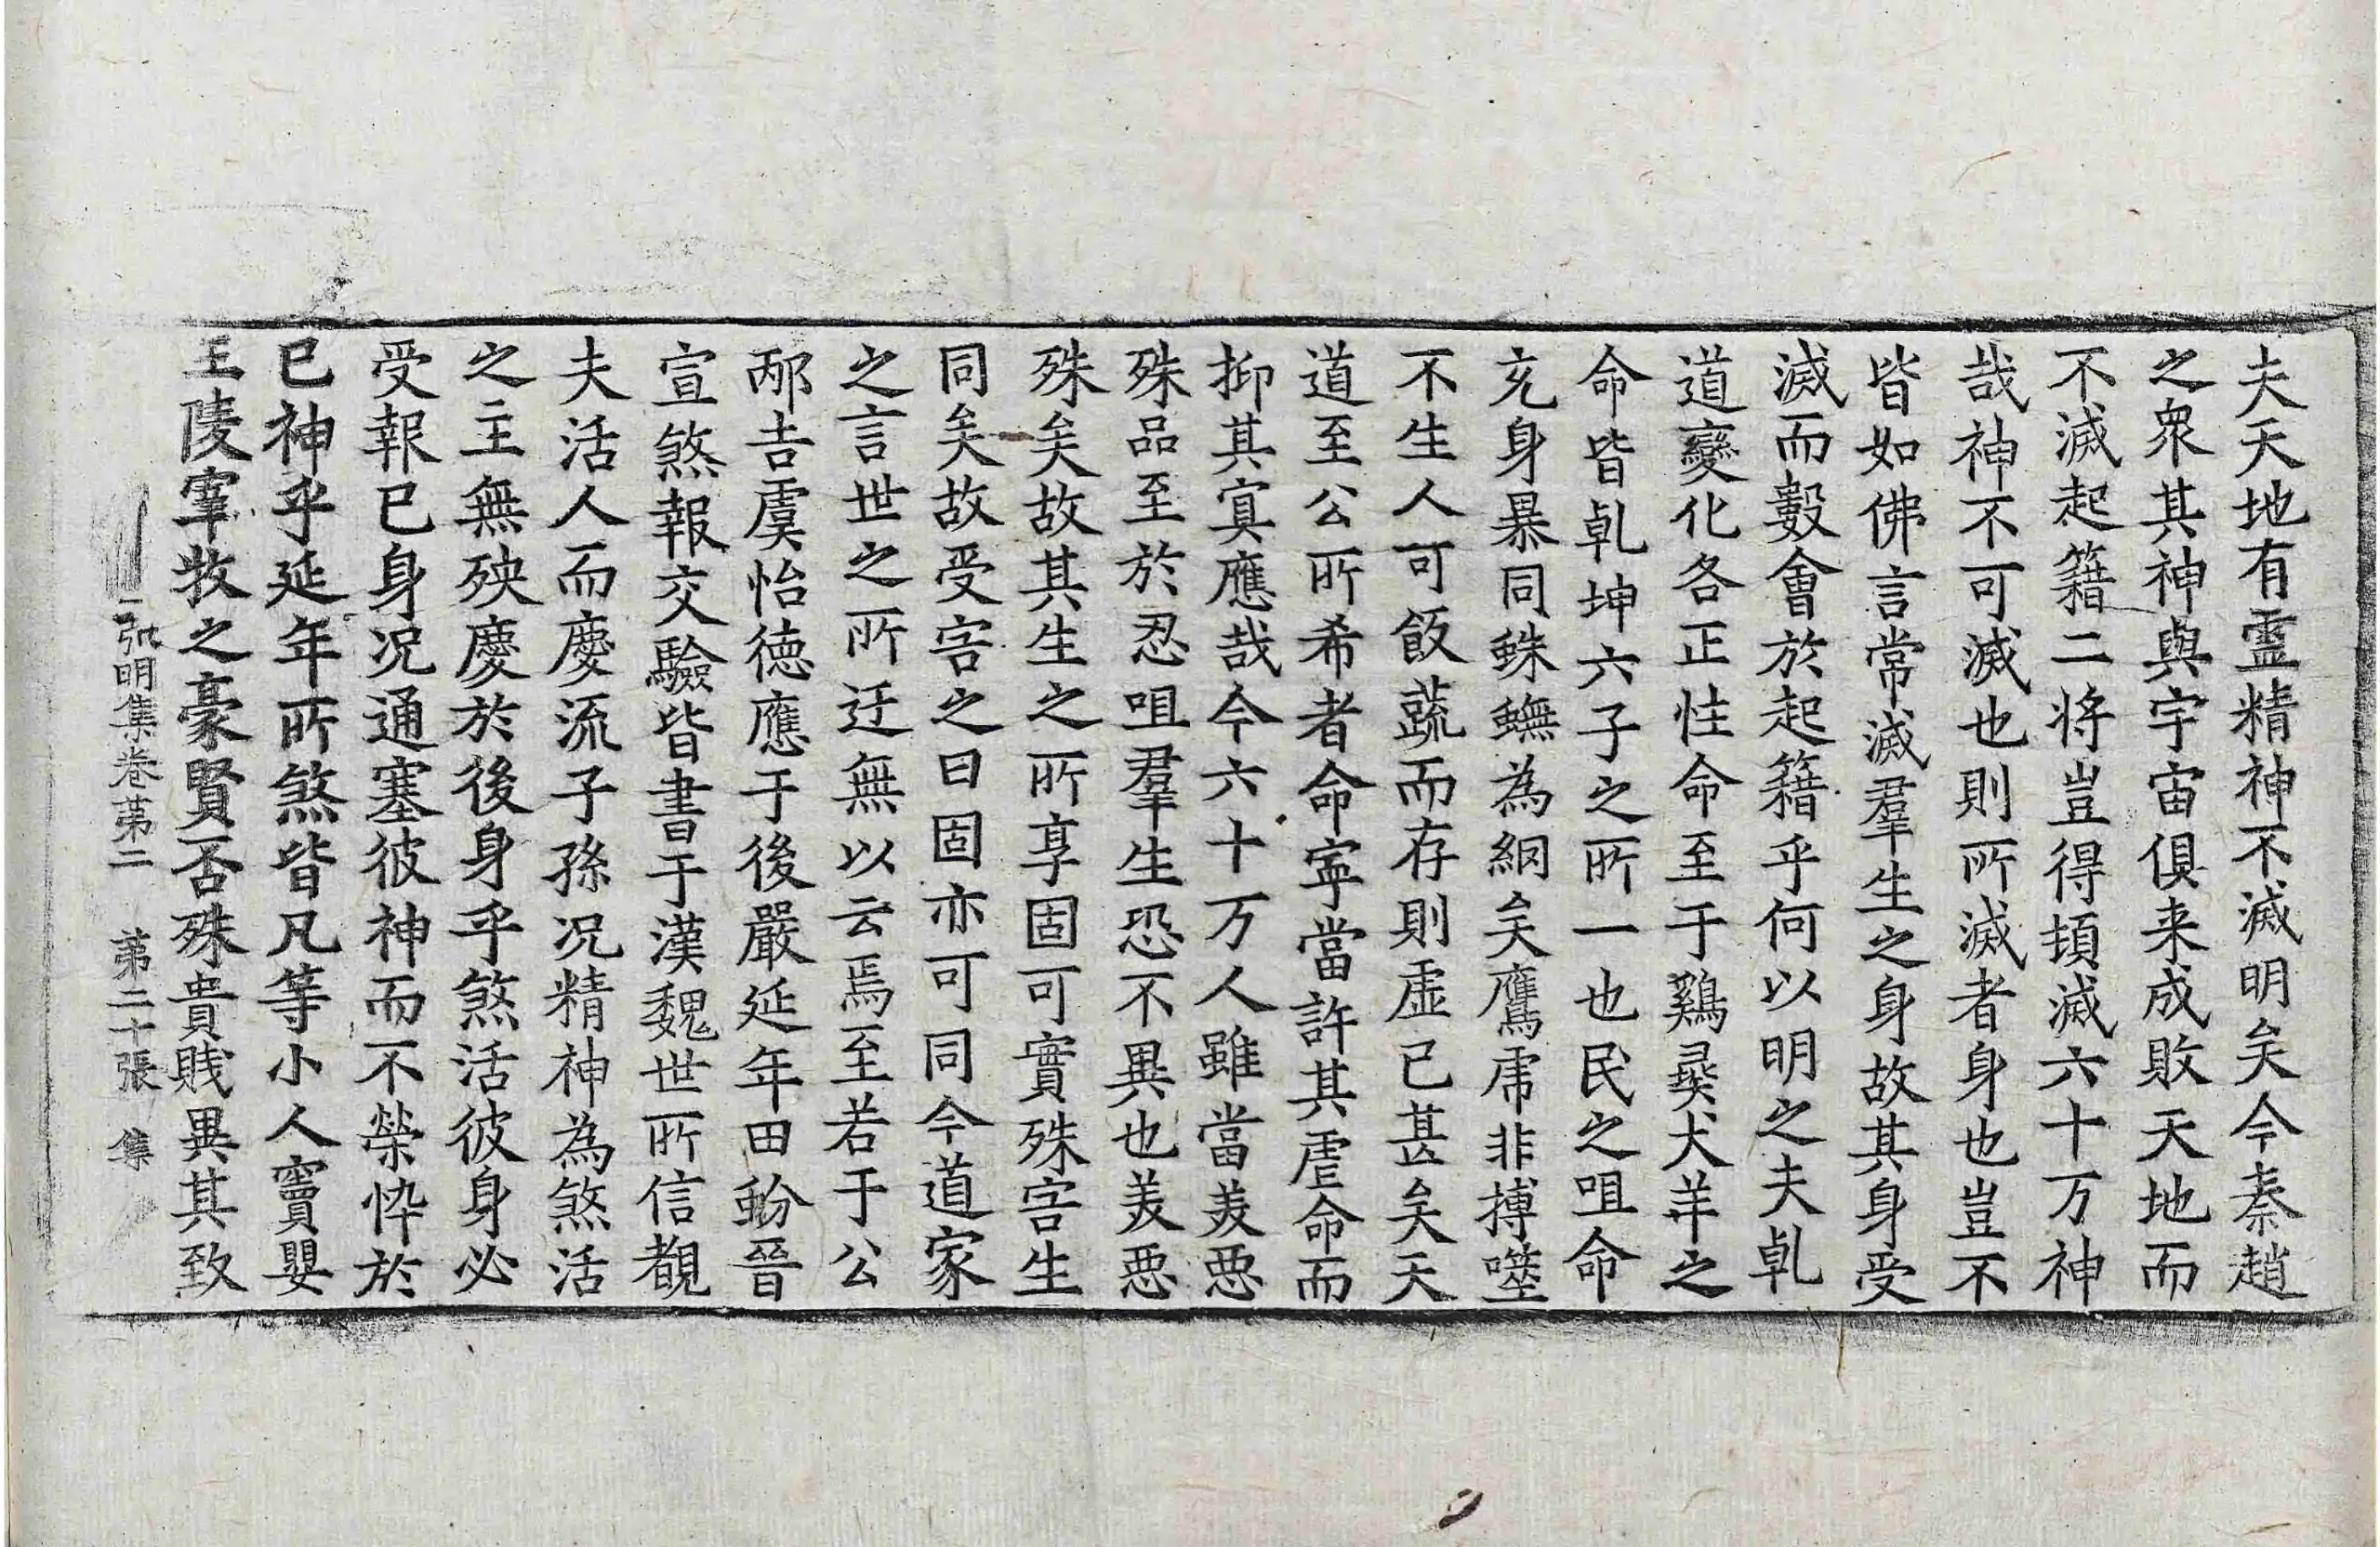 夫天地有靈精神不滅明矣今秦趙
之衆其神與宇宙俱来成敗天地而
不滅起籍二将豈得頓滅六十万神
哉神不可滅也則所滅者身也豈不
皆如佛言常滅羣生之身故其身受
滅而數會於起籍乎何以明之夫乹
道變化各正性命至于鷄彘犬羊之
命皆乹坤六子之所一也民之咀命
充身暴同蛛蟱為網矣鷹虎非搏噬
不生人可飯蔬而存則虛已甚矣天
道至公所希者命寧當許其虐命而
抑其冥應哉今六十万人雖當美惡
殊品至於忍咀羣生恐不異也美惡
殊矣故其生之所享固可實殊害生
同矣故受害之日固亦可同今道家
之言世之所迂無以云焉至若于公
邴吉虞怡德應于後嚴延年田蚡晉
宣煞報交驗皆書于漢魏世所信覩
夫活人而慶流子孫况精神為煞活
之主無殃慶於後身乎煞活彼身必
受報已身况通塞彼神而不榮悴於
已神乎延年所煞皆凡等小人竇嬰
王陵宰牧之豪賢否殊貴賤異其致
弘明集卷第二 第二十張 集